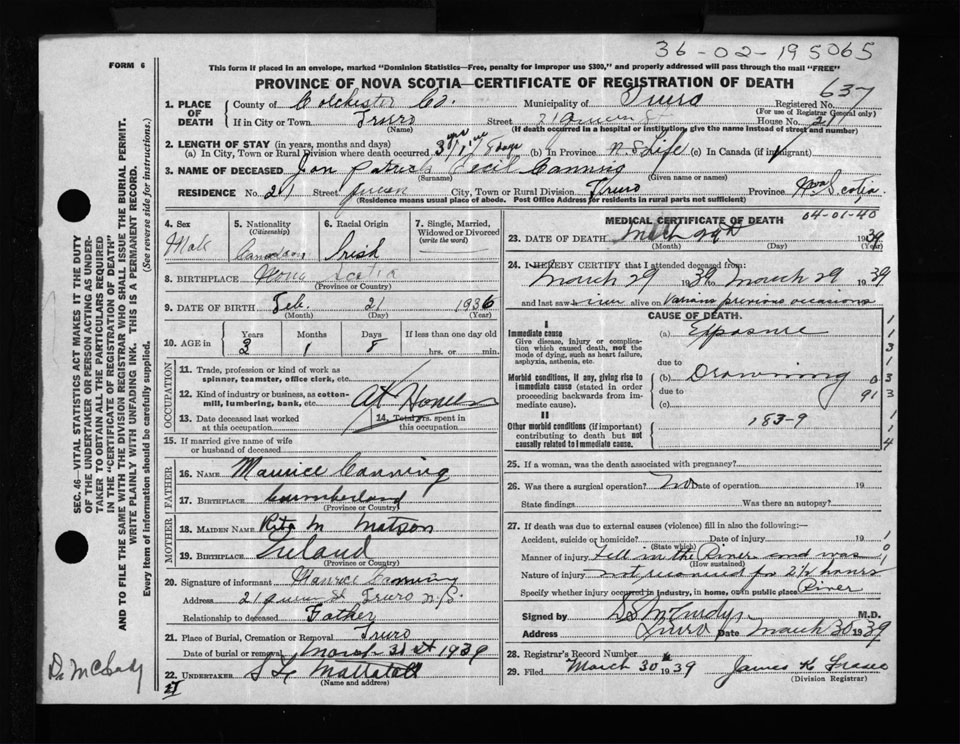 36-02-195065
FORM 6
This form if placed in an envelope, marked "Dominion Statistics—Free, penalty for improper use $300," and properly addressed will pass through the mail "FREE"
PROVINCE OF NOVA SCOTIA—CERTIFICATE OF REGISTRATION OF DEATH
637
1. PLACE OF DEATH County of Colchester Co. Municipality of Truro Registered No. (For use of Registrar General only)
If in City or Town Truro (Name) Street 21 Queen St House No. 21
(If death occurred in a hospital or institution, give the name instead of street and number)
2. LENGTH OF STAY (in years, months and days)
(a) In City, Town or Rural Division where death occurred (b) In Province N.S. Life (c) In Canada (if immigrant)
3. NAME OF DECEASED Patrick Cecil Canning
(Surname) (Given name or names)
RESIDENCE No. 21 Street Queen City, Town or Rural Division Truro Province Nova Scotia
(Residence means usual place of abode. Post Office Address for residents in rural parts not sufficient)
4. Sex Male
5. Nationality (Citizenship) Canadian
6. Racial Origin Irish
7. Single, Married, Widowed or Divorced (write the word)
8. BIRTHPLACE Nova Scotia
(Province or Country)
9. DATE OF BIRTH Feb. 21 1936
(Month) (Day) (Year)
10. AGE in Years 3 Months 1 Days 8 If less than one day old hrs. or min.
OCCUPATION
11. Trade, profession or kind of work as spinner, teamster, office clerk, etc.
12. Kind of industry or business, as cotton-mill, lumbering, bank, etc. At Home
13. Date deceased last worked at this occupation 14. Total yrs. spent in this occupation
15. If married give name of wife or husband of deceased
FATHER
16. NAME Maurice Canning
17. BIRTHPLACE Cumberland
(Province or Country)
MOTHER
18. MAIDEN NAME Rita M Matson
19. BIRTHPLACE Ireland
(Province or Country)
20. Signature of informant Maurice Canning
Address 21 Queen St Truro N.S.
Relationship to deceased Father
21. Place of Burial, Cremation or Removal Truro
Date of burial or removal March 31st 1939
22. UNDERTAKER Mattatall
(Name and address)
MEDICAL CERTIFICATE OF DEATH
04-01-40
23. DATE OF DEATH 29th 1939
(Month) (Day) (Year)
24. I HEREBY CERTIFY that I attended deceased from:
March 29 1939 to March 29 1939
and last saw him alive on Various previous occasions
CAUSE OF DEATH
I
Immediate cause (a) Exposure
Give disease, injury or complication which caused death, not the mode of dying, such as heart failure, asphyxia, asthenia, etc.
due to
Morbid conditions, if any, giving rise to immediate cause (stated in order proceeding backwards from immediate cause). (b) Drowning
due to
(c)
II
Other morbid conditions (if important) contributing to death but not causally related to immediate cause. 183-9
25. If a woman, was the death associated with pregnancy?
26. Was there a surgical operation? No Date of operation 19
State findings Was there an autopsy?
27. If death was due to external causes (violence) fill in also the following:—
Accident, suicide or homicide? Date of injury 19
(State which)
Manner of injury Fell in the River and was
(How sustained)
Nature of injury not recovered for 2½ hours
Specify whether injury occurred in industry, in home, or in public place River
Signed by McCurdy M.D.
Address Truro Date March 30 1939
28. Registrar's Record Number
29. Filed March 30 1939
(Division Registrar)
SEC. 46—VITAL STATISTICS ACT MAKES IT THE DUTY
OF THE UNDERTAKER OR PERSON ACTING AS UNDER-
TAKER TO OBTAIN ALL THE PARTICULARS REQUIRED
IN THE "CERTIFICATE OF REGISTRATION OF DEATH"
AND TO FILE THE SAME WITH THE DIVISION REGISTRAR WHO SHALL ISSUE THE BURIAL PERMIT.
WRITE PLAINLY WITH UNFADING INK. THIS IS A PERMANENT RECORD.
Every item of information should be carefully supplied. (See reverse side for instructions.)